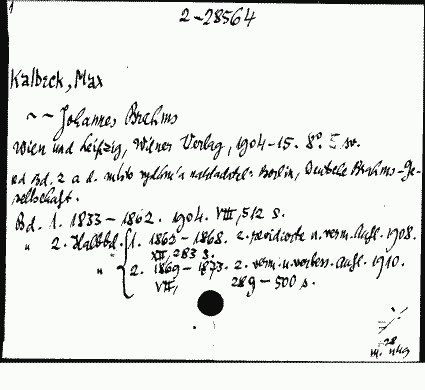 2-28564
Kalbeck, Max
~ ~ Johannes Brahms
Wien und Leipzig, Wiener Verlag, 1904-15. 8° 5 sv.
od Bd. 2 a d. místo vydání a nakladatel: Berlin, Deutsche Brahms-Ge-
sellschaft.
Bd. 1. 1833-1862. 1904. VIII, 512 s.
" 2. Halbbd. 1. 1862-1868. 2. revidierte u. verm. Aufl. 1908.
XII, 283 s.
" 2. 1869-1873. 2. verm. u. verbess. Aufl. 1910.
VII, 289-500 s.
28